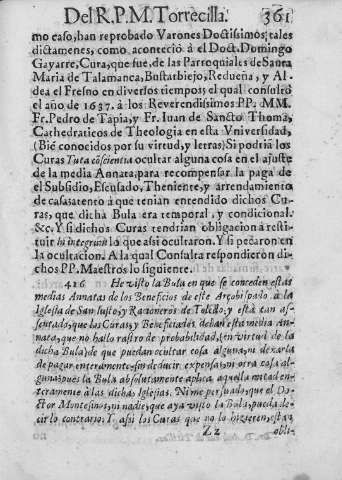 Del R.P.M. Torrecilla. 361
mo caso, han reprobado Varones Doctissimos, tales
dictamenes, como aconteciò à el Doct. Domingo
Gayarre, Cura, que fue, de las Parroquiales de Santa
Maria de Talamanca, Bustarbiejo, Redueña, y Al
dea el Fresno en diversos tiempos; el qual consultò
el año de 1637. à los Reverendissimos PP. MM.
Fr. Pedro de Tapia, y Fr. Iuan de Sancto Thoma,
Cathedraticos de Theologia en esta Vniversidad,
(Bié conocidos por su virtud, y letras) Si podriã los
Curas Tuta cõscientia ocultar alguna cosa en el ajuste
de la media Annata, para recompensar la paga de
el Subsidio, Escusado, Theniente, y arrendamiento
de casas: atento à que tenian entendido dichos Cu-
ras, que dicha Bula era temporal, y condicional.
&c. Y si dichos Curas tendrian obligacion à resti-
tuir in integrum lo que assi ocultaron. Y si pecaron en
la ocultacion. A la qual Consulta respondieron di-
chos PP. Maestros lo siguiente.
426 He visto la Bula en que se conceden estas
medias Annatas de los Beneficios de este Arçobispado à la
Iglesia de San Iusto, y Racioneros de Toledo, y està tan as-
sentado, que los Curas, y Beneficiados deban esta media An-
nata, que no hallo rastro de probabilidad, (en virtud de la
dicha Bula) de que puedan ocultar cosa alguna, ni dexarla
de pagar enteramente, sin deducir expensas, ni otra cosa al-
guna: pues la Bula absolutamente aplica aquella mitad en-
teramente à las dichas Iglesias. Ni me persuado, que el Do-
ctor Montesinos, ni nadie, que aya visto la Bula, pueda de-
cir lo contrario. Y assi los Curas que no lo hizieren, estàn
Zz obli-